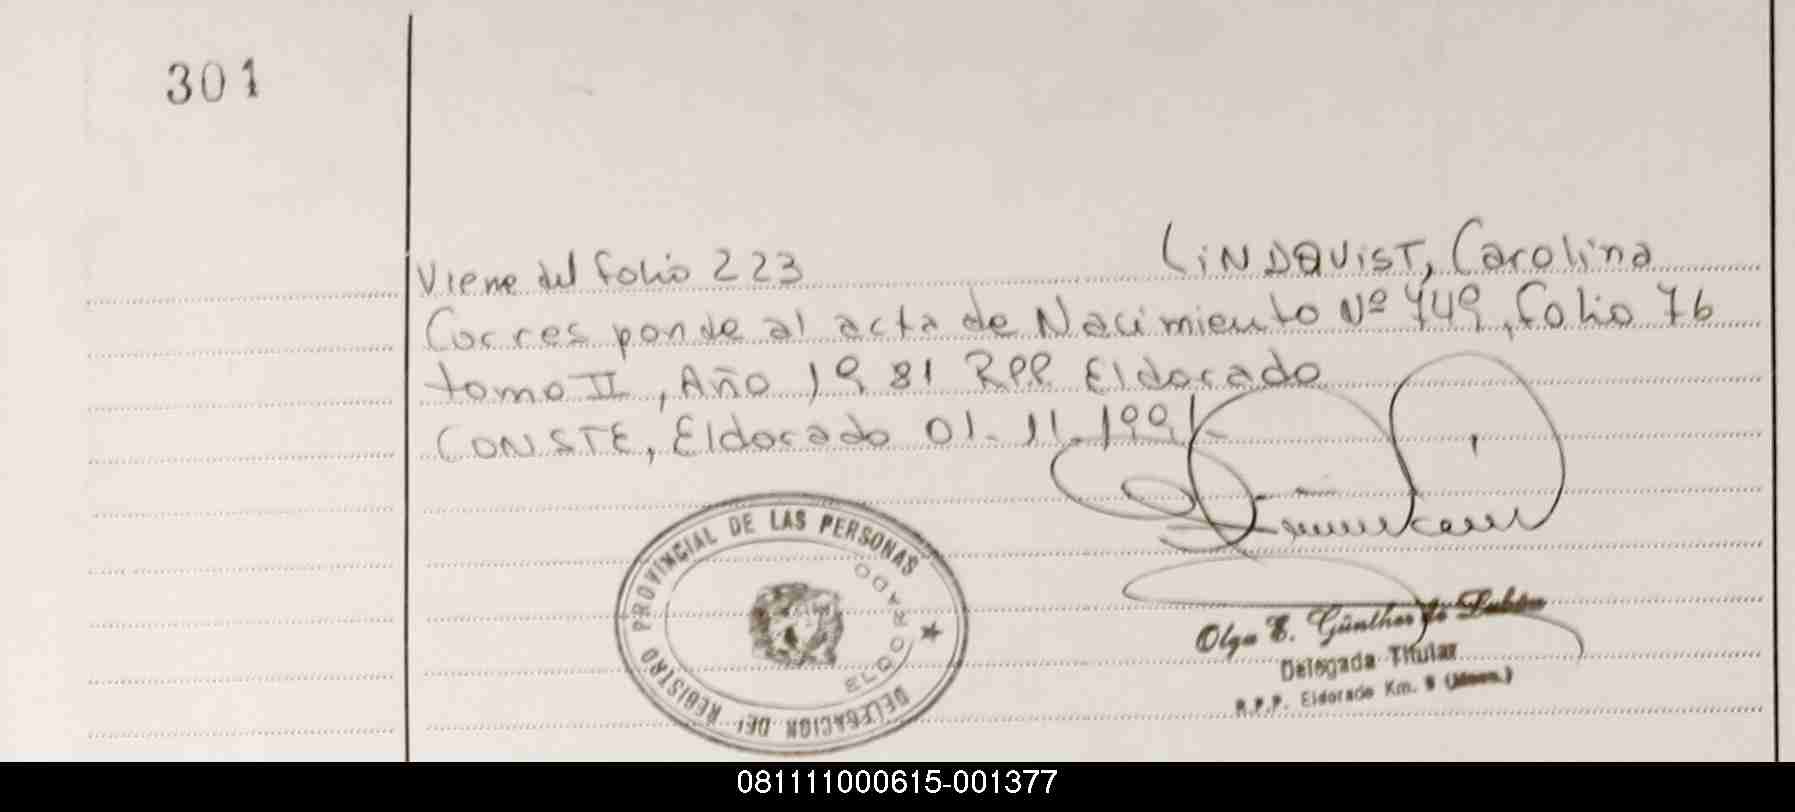 301
Viene del folio 223 LINDQUIST, Carolina
Corresponde al acta de Nacimiento Nº 749, folio 76
tomo II, Año 1981 R.P.P. Eldorado
CONSTE, Eldorado 01-11-1991
DELEGACION DEL REGISTRO PROVINCIAL DE LAS PERSONAS
ELDORADO
Olga E. Günther de
Delegada Titular
R.P.P. Eldorado Km. 9
081111000615-001377